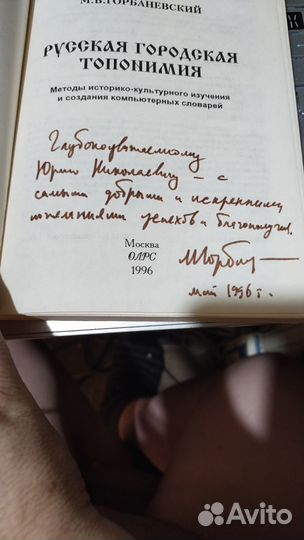 М.В.ГОРБАНЕВСКИЙ
РУССКАЯ ГОРОДСКАЯ
ТОПОНИМИЯ
Методы историко-культурного изучения
и создания компьютерных словарей
Глубокоуважаемому
Юрию Николаевичу – с
самыми добрыми и искренними
пожеланиями успехов и благополучия.
Москва
ОЛРС
1996
МГорбан
май 1996 г.
Avito